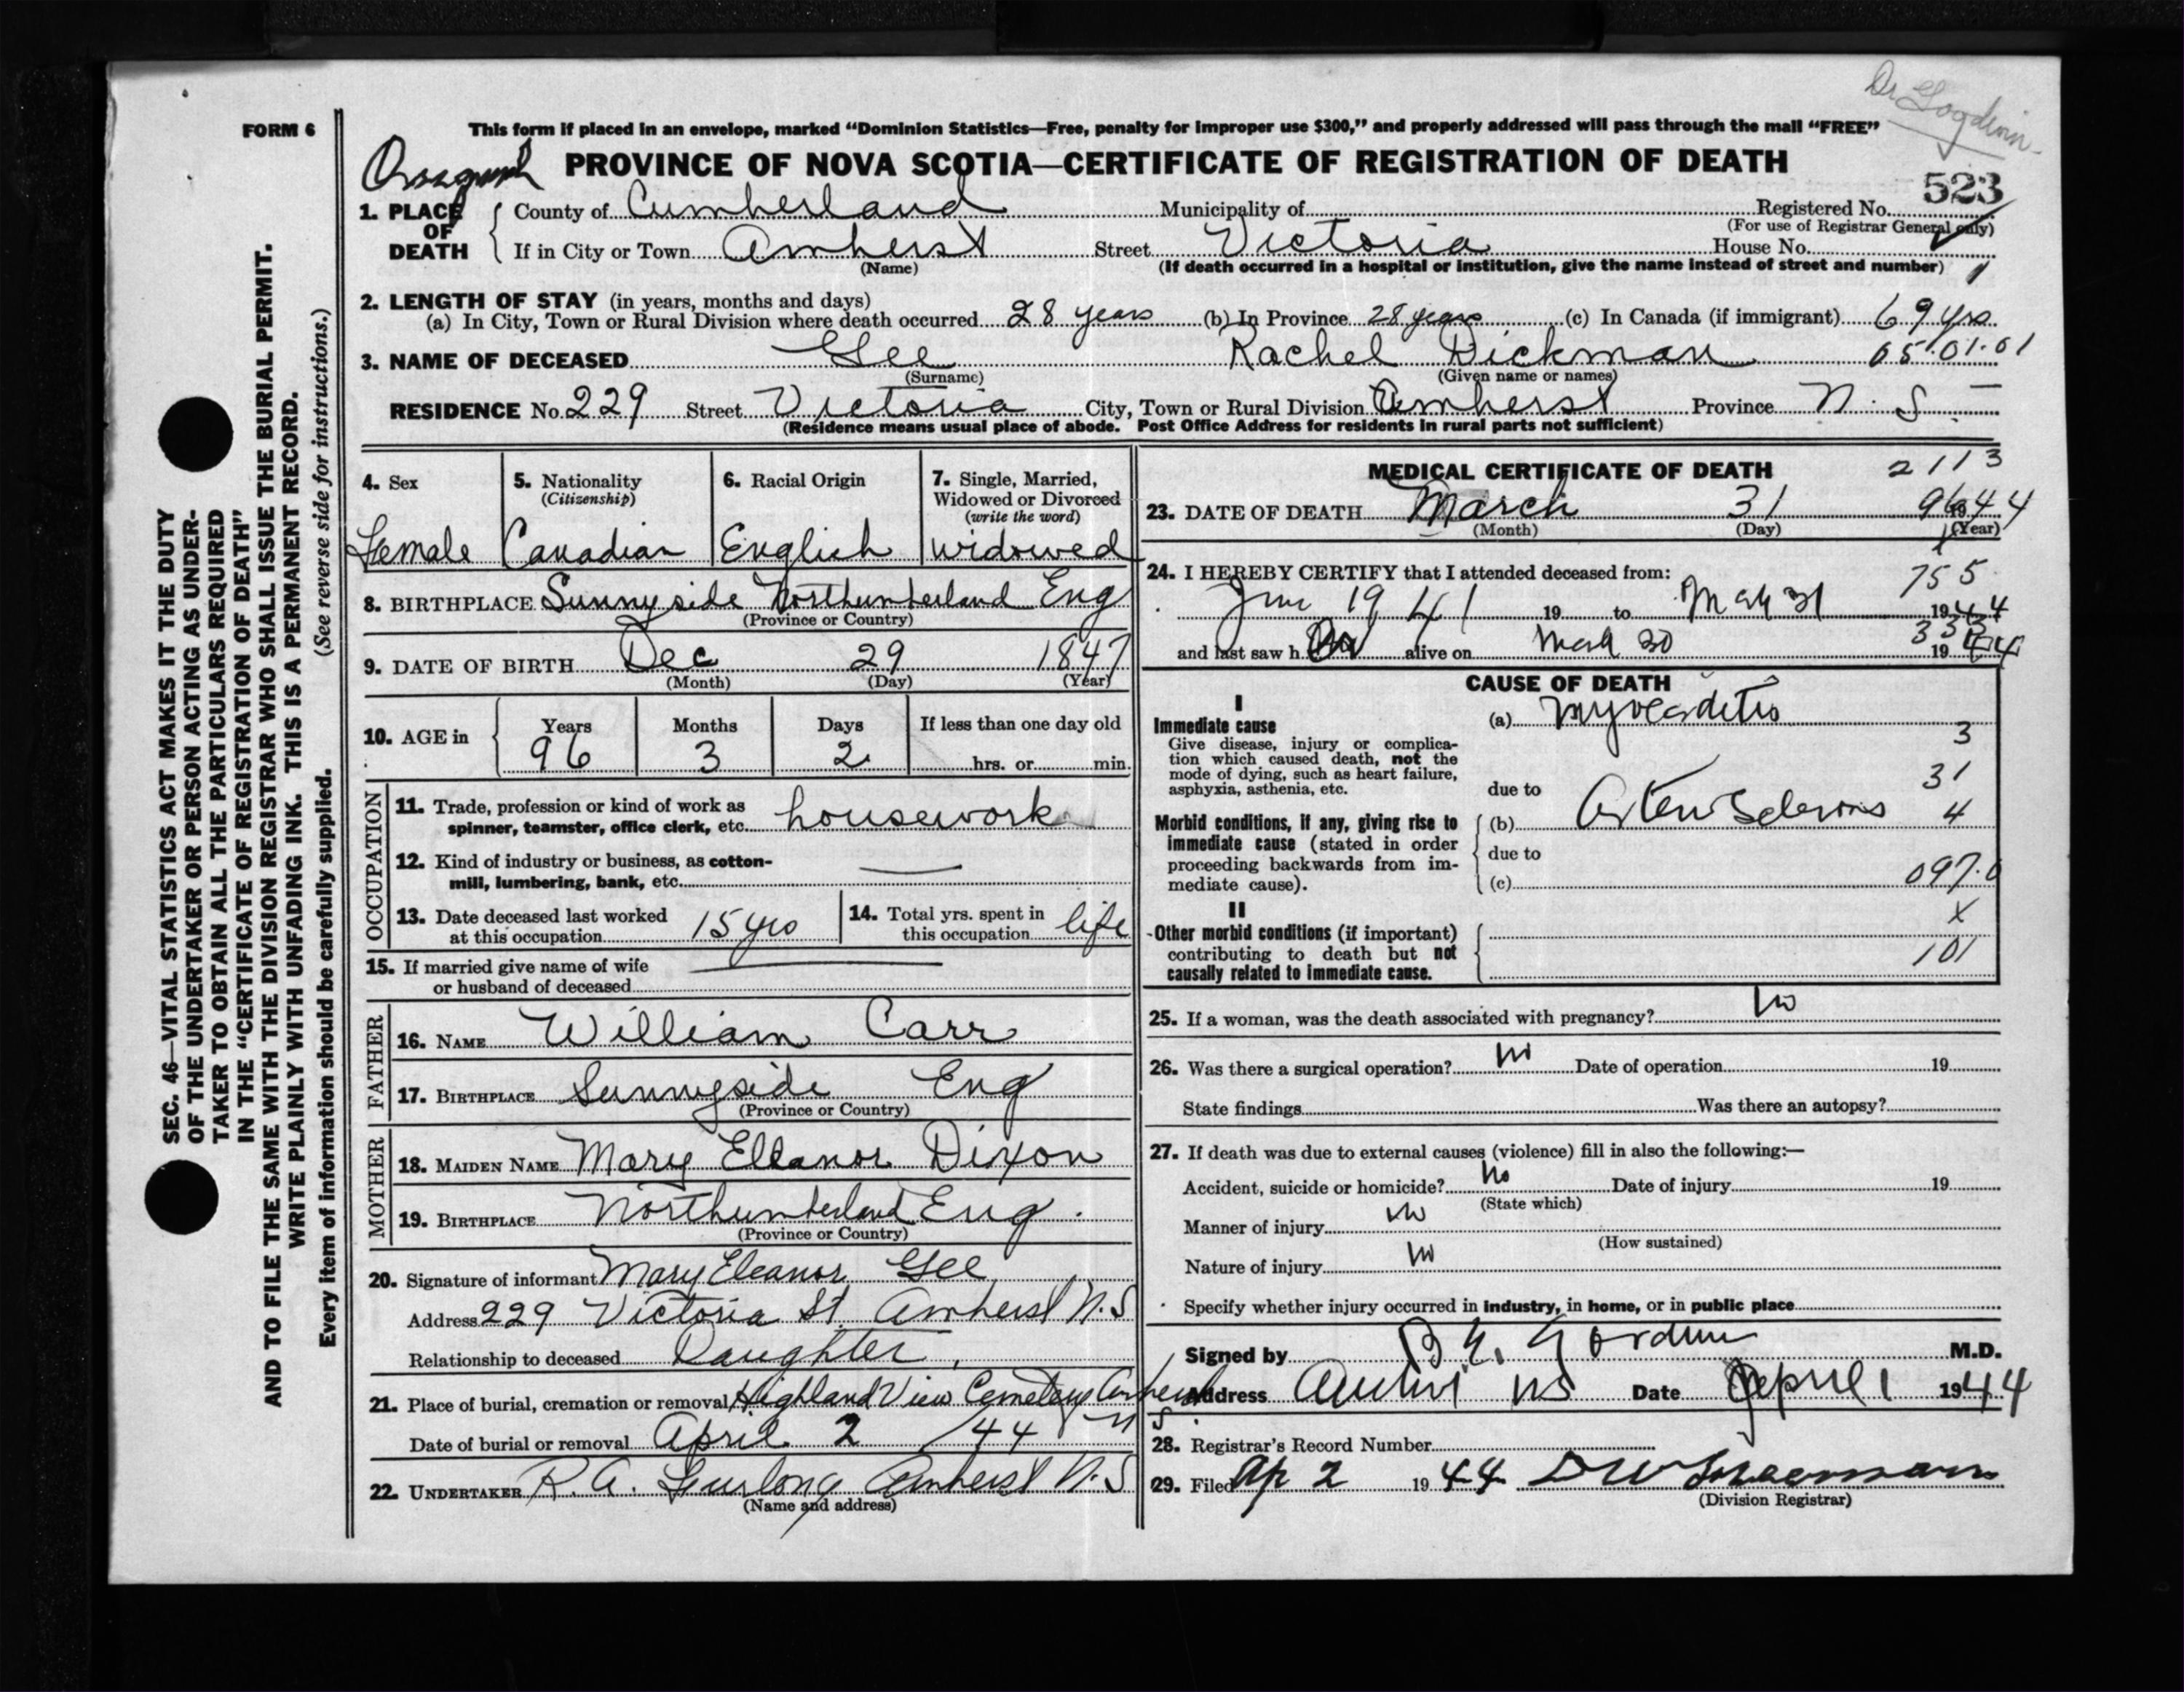 Dr
FORM 6
This form if placed in an envelope, marked “Dominion Statistics—Free, penalty for improper use $300,” and properly addressed will pass through the mail “FREE”
PROVINCE OF NOVA SCOTIA—CERTIFICATE OF REGISTRATION OF DEATH
523
1. PLACE OF DEATH
County of Cumberland Municipality of Registered No.
(For use of Registrar General only)
If in City or Town Amherst Street Victoria House No.
(Name) (If death occurred in a hospital or institution, give the name instead of street and number)
2. LENGTH OF STAY (in years, months and days)
(a) In City, Town or Rural Division where death occurred 28 years (b) In Province 28 years (c) In Canada (if immigrant) 69 yrs
3. NAME OF DECEASED Gee Rachel Dickman 65.01.01
(Surname) (Given name or names)
RESIDENCE No. 229 Street Victoria City, Town or Rural Division Amherst Province N.S.
(Residence means usual place of abode. Post Office Address for residents in rural parts not sufficient)
4. Sex
Female
5. Nationality
(Citizenship)
Canadian
6. Racial Origin
English
7. Single, Married,
Widowed or Divorced
(write the word)
Widowed
8. BIRTHPLACE Sunnyside Northumberland Eng
(Province or Country)
9. DATE OF BIRTH Dec 29 1847
(Month) (Day) (Year)
10. AGE in
Years Months Days If less than one day old
96 3 2 hrs. or min.
OCCUPATION
11. Trade, profession or kind of work as
spinner, teamster, office clerk, etc. housework
12. Kind of industry or business, as cotton-
mill, lumbering, bank, etc.
13. Date deceased last worked
at this occupation 15 yrs
14. Total yrs. spent in
this occupation life
15. If married give name of wife
or husband of deceased
FATHER
16. NAME William Carr
17. BIRTHPLACE Sunnyside Eng
(Province or Country)
MOTHER
18. MAIDEN NAME Mary Elianor Dixon
19. BIRTHPLACE Northumberland Eng.
(Province or Country)
20. Signature of informant Mary Eleanor Gee
Address 229 Victoria St. Amherst N.S
Relationship to deceased Daughter
21. Place of burial, cremation or removal Highland View Cemetery Amherst
N S.
Date of burial or removal April 2 /44
22. UNDERTAKER R.A. Furlong Amherst N.S
(Name and address)
MEDICAL CERTIFICATE OF DEATH 2113
23. DATE OF DEATH March 31 1944
(Month) (Day) (Year)
24. I HEREBY CERTIFY that I attended deceased from: 755
June 1941 19 to March 31 1944
333
and last saw her alive on March 30 1944
CAUSE OF DEATH
I
Immediate cause
Give disease, injury or complica-
tion which caused death, not the
mode of dying, such as heart failure,
asphyxia, asthenia, etc.
(a) Myocarditis
3
31
due to
Morbid conditions, if any, giving rise to
immediate cause (stated in order
proceeding backwards from im-
mediate cause).
(b) Arterio Sclerosis 4
due to
(c) 097.0
II
X
Other morbid conditions (if important)
contributing to death but not
causally related to immediate cause.
101
25. If a woman, was the death associated with pregnancy? no
26. Was there a surgical operation? no Date of operation 19
State findings Was there an autopsy?
27. If death was due to external causes (violence) fill in also the following:—
Accident, suicide or homicide? No Date of injury 19
(State which)
Manner of injury no
(How sustained)
Nature of injury no
Specify whether injury occurred in industry, in home, or in public place
Signed by M.D.
Address Amherst NS Date April 1 1944
28. Registrar's Record Number
29. Filed Ap 2 1944
(Division Registrar)
SEC. 46—VITAL STATISTICS ACT MAKES IT THE DUTY
OF THE UNDERTAKER OR PERSON ACTING AS UNDER-
TAKER TO OBTAIN ALL THE PARTICULARS REQUIRED
IN THE “CERTIFICATE OF REGISTRATION OF DEATH”
AND TO FILE THE SAME WITH THE DIVISION REGISTRAR WHO SHALL ISSUE THE BURIAL PERMIT.
WRITE PLAINLY WITH UNFADING INK. THIS IS A PERMANENT RECORD.
Every item of information should be carefully supplied. (See reverse side for instructions.)